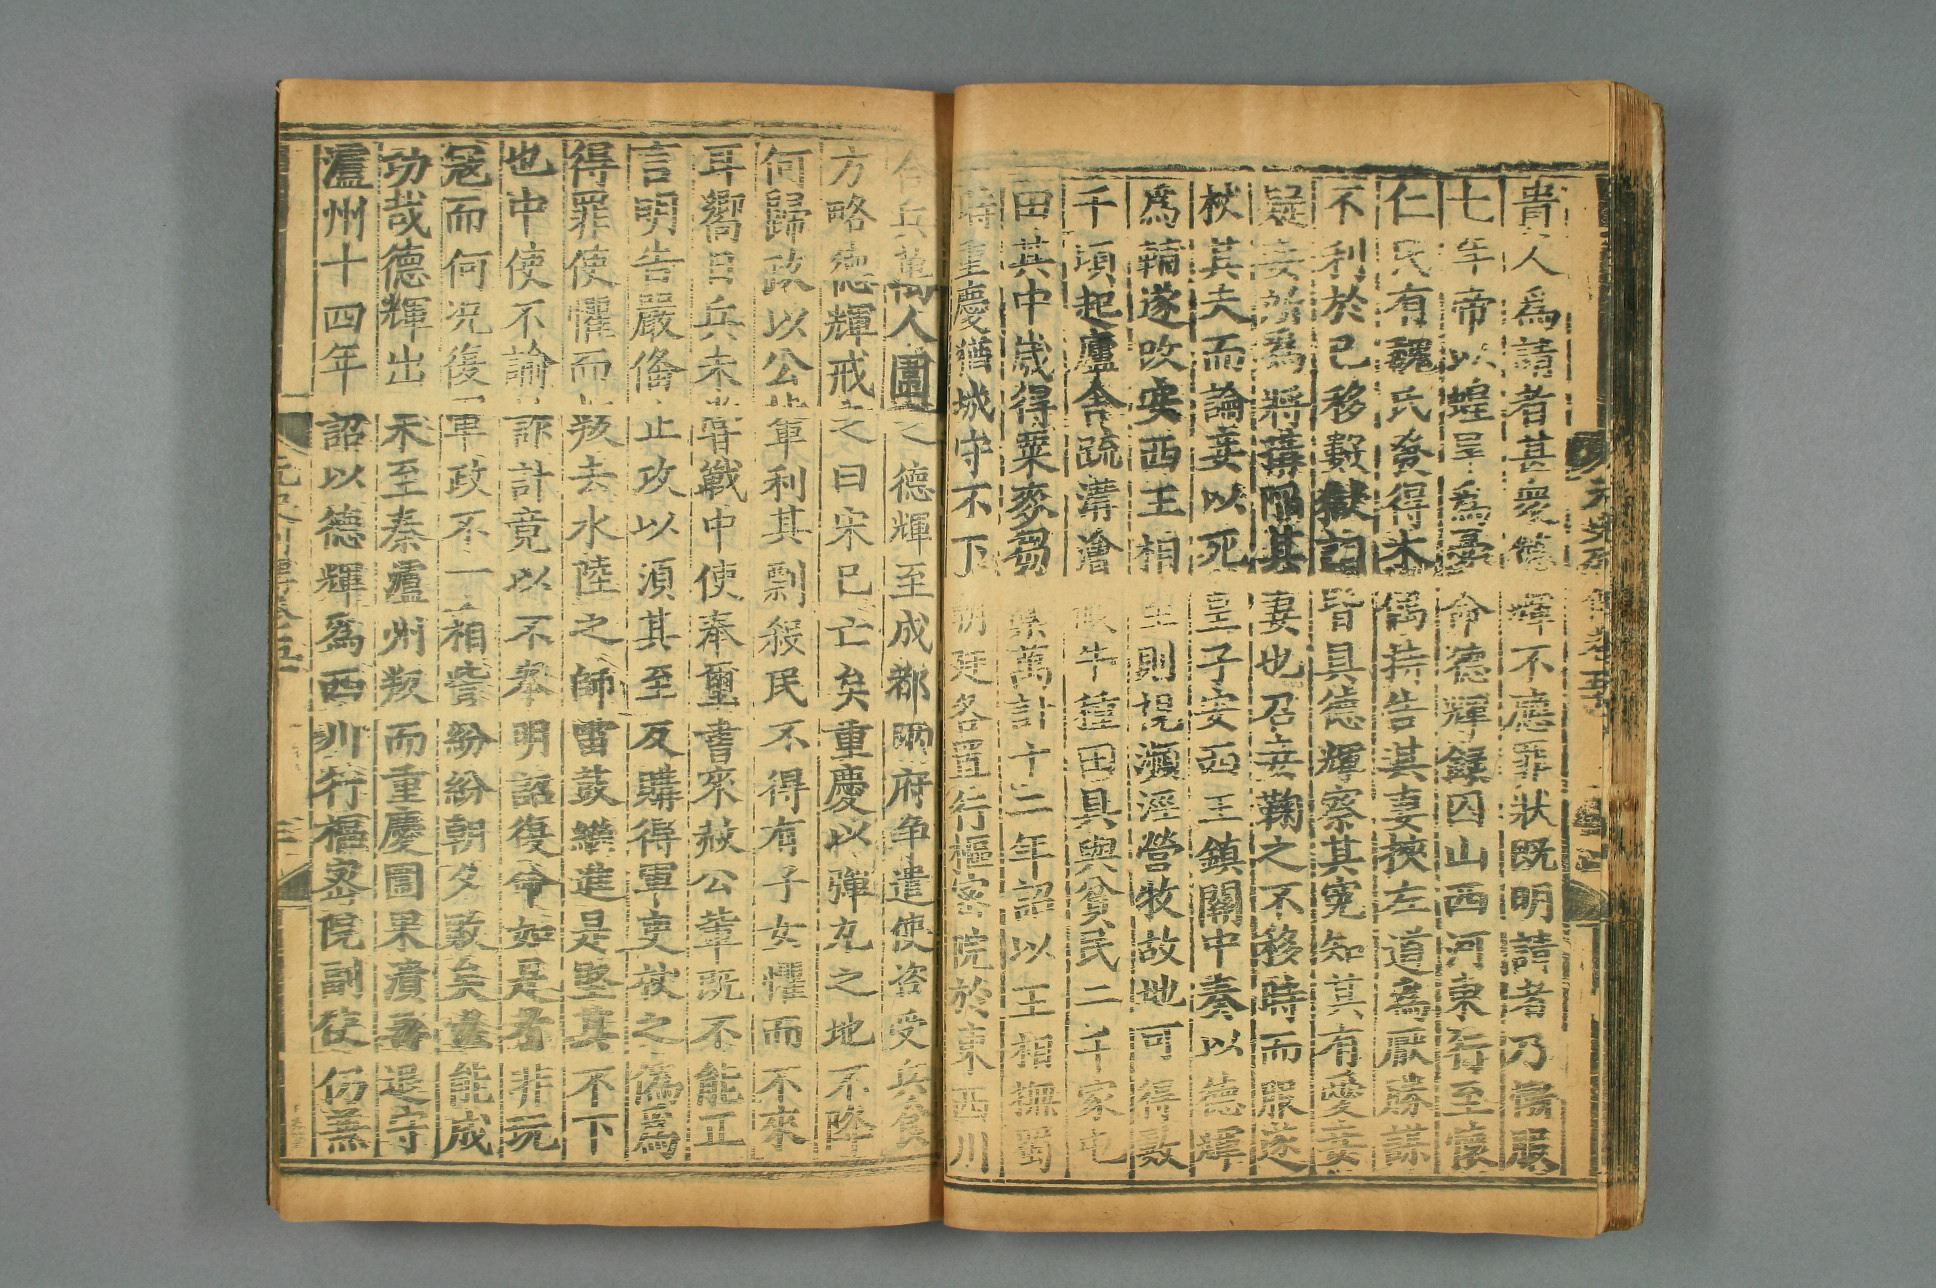 元史列傳卷五十
貴人爲請者甚衆德輝不應罪狀既明請者乃慚服
七年帝以蝗旱爲憂命德輝錄囚山西河東行至懷
仁民有魏氏發得木偶持告其妻挾左道爲厭勝謀
不利於己移數獄詞皆具德輝察其冤知其有愛妾
疑妾所爲將搆陷其妻也召妾鞫之不移時而服遂
杖其夫而論妾以死皇子安西王鎮關中奏以德輝
爲輔遂改安西王相至則視瀕涇營牧故地可得數
千頃起廬舍疏溝澮假牛種田具與貧民二千家屯
田其中歲得粟麥芻藁萬計十二年詔以王相撫蜀
時重慶猶城守不下朝廷各置行樞密院於東西川
合兵萬人圍之德輝至成都兩府爭遣使咨受兵食
方略德輝戒之曰宋已亡矣重慶以彈丸之地不降
何歸政以公輩利其剽殺民不得有子女懼而不來
耳嚮日兵未嘗戰中使奉璽書來赦公輩既不能正
言明告嚴備止攻以須其至反購得軍吏杖之僞爲
得罪使懼而叛去水陸之師雷鼓繼進是堅其不下
也中使不諭詐計竟以不奉明詔復命如是者非玩
寇而何況復軍政不一相訾紛紛朝夕敗矣豈能成
功哉德輝出未至秦瀘州叛而重慶圍果潰再退守
瀘州十四年詔以德輝爲西川行樞密院副使仍兼
元史列傳卷五十 三